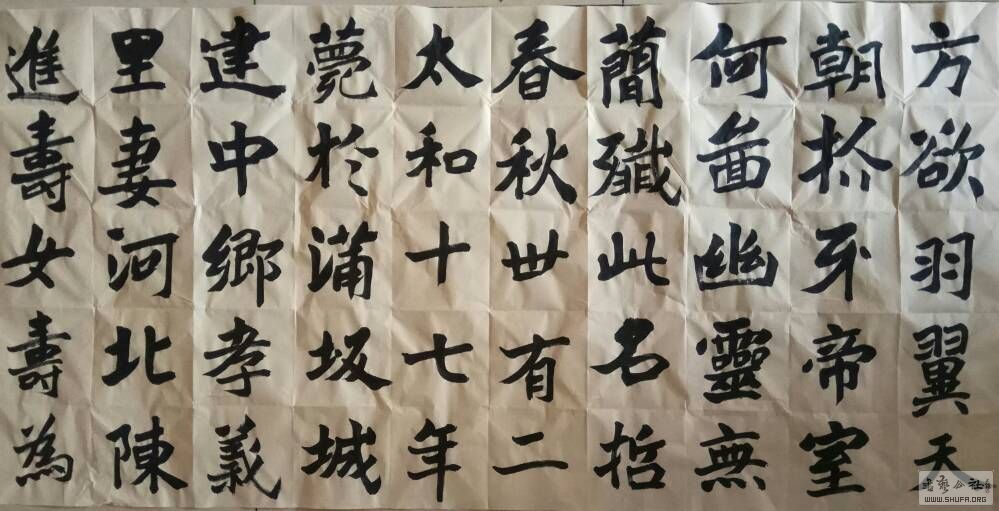 方欲羽翼天
朝抓牙帝室
何啚幽靈無
蕳殲此名哲
春秋世有二
太和十七年
薨於蒲坂城
建中鄉孝義
里妻河北陳
進壽女壽為
書藝公社
WWW.SHUFA.ORG